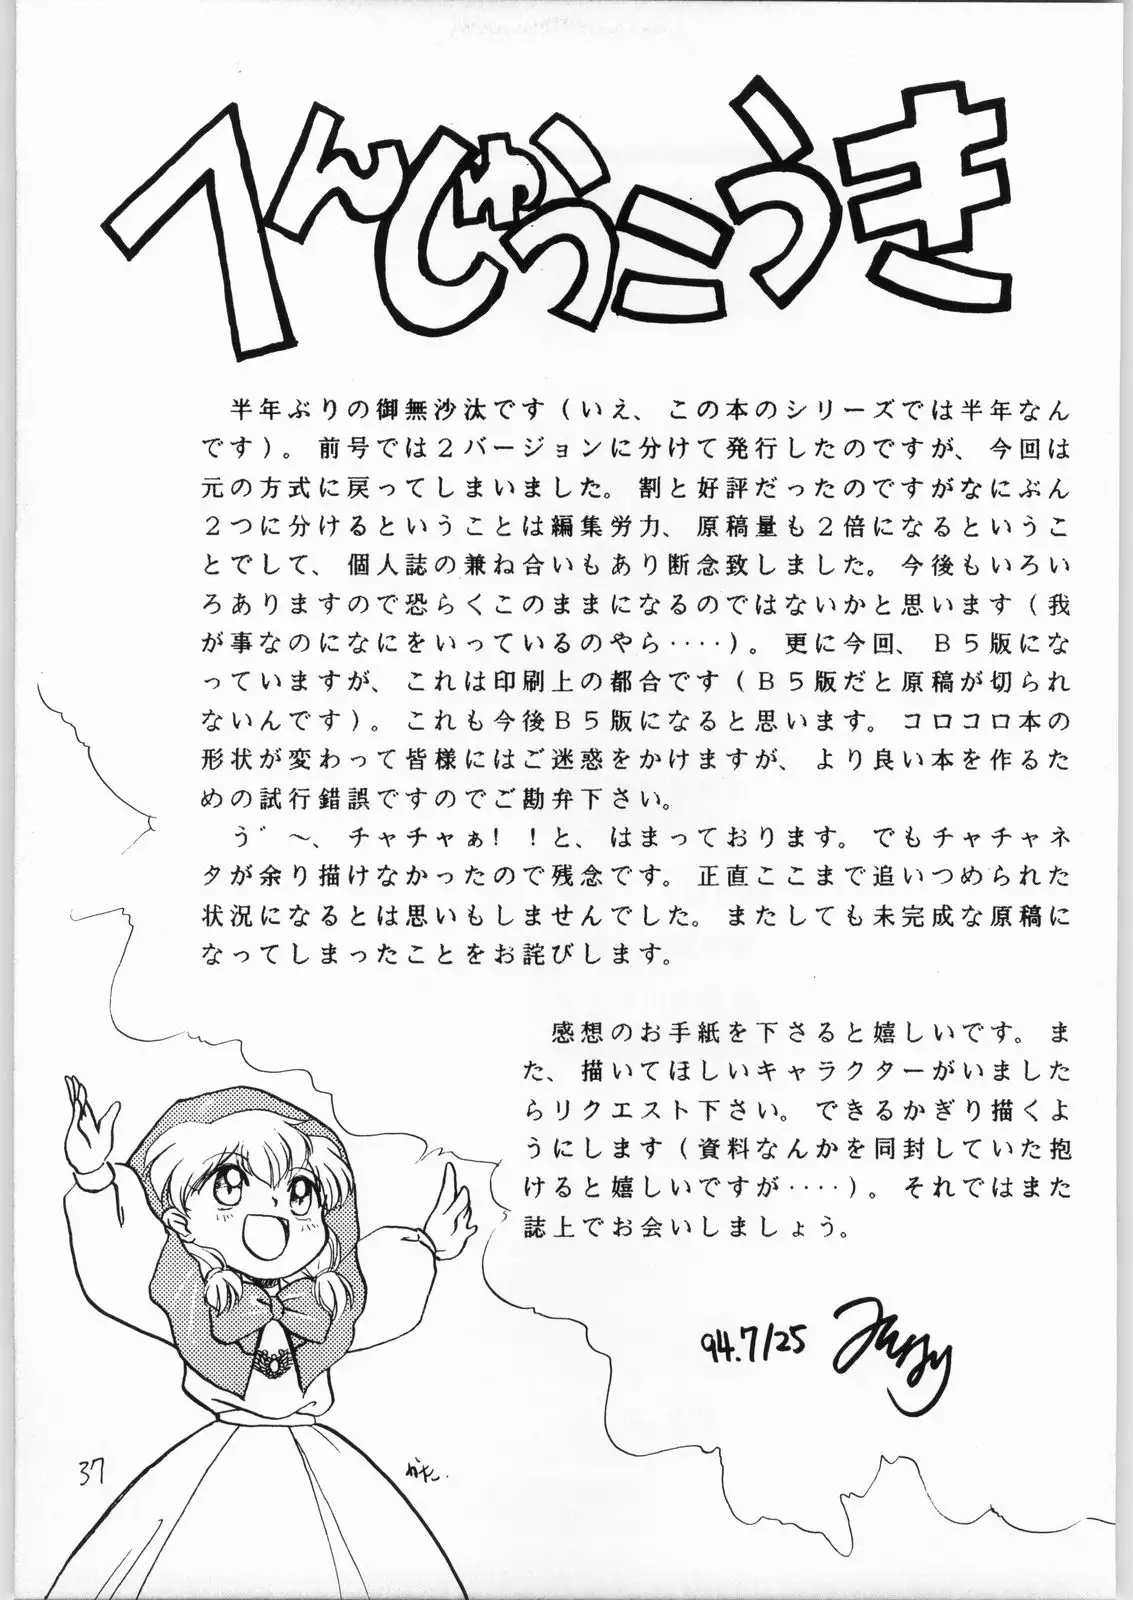 へんしゅうこうき
半年ぶりの御無沙汰です（いえ、この本のシリーズでは半年なん
です）。前号では２バージョンに分けて発行したのですが、今回は
元の方式に戻ってしまいました。割と好評だったのですがなにぶん
２つに分けるということは編集労力、原稿量も２倍になるというこ
とでして、個人誌の兼ね合いもあり断念致しました。今後もいろい
ろありますので恐らくこのままになるのではないかと思います（我
が事なのになにをいっているのやら‥‥）。更に今回、Ｂ５版にな
っていますが、これは印刷上の都合です（Ｂ５版だと原稿が切られ
ないんです）。これも今後Ｂ５版になると思います。コロコロ本の
形状が変わって皆様にはご迷惑をかけますが、より良い本を作るた
めの試行錯誤ですのでご勘弁下さい。
う゛～、チャチャぁ！！と、はまっております。でもチャチャネ
タが余り描けなかったので残念です。正直ここまで追いつめられた
状況になるとは思いもしませんでした。またしても未完成な原稿に
なってしまったことをお詫びします。
感想のお手紙を下さると嬉しいです。ま
た、描いてほしいキャラクターがいました
らリクエスト下さい。できるかぎり描くよ
うにします（資料なんかを同封していた抱
けると嬉しいですが‥‥）。それではまた
誌上でお会いしましょう。
94.7/25
37